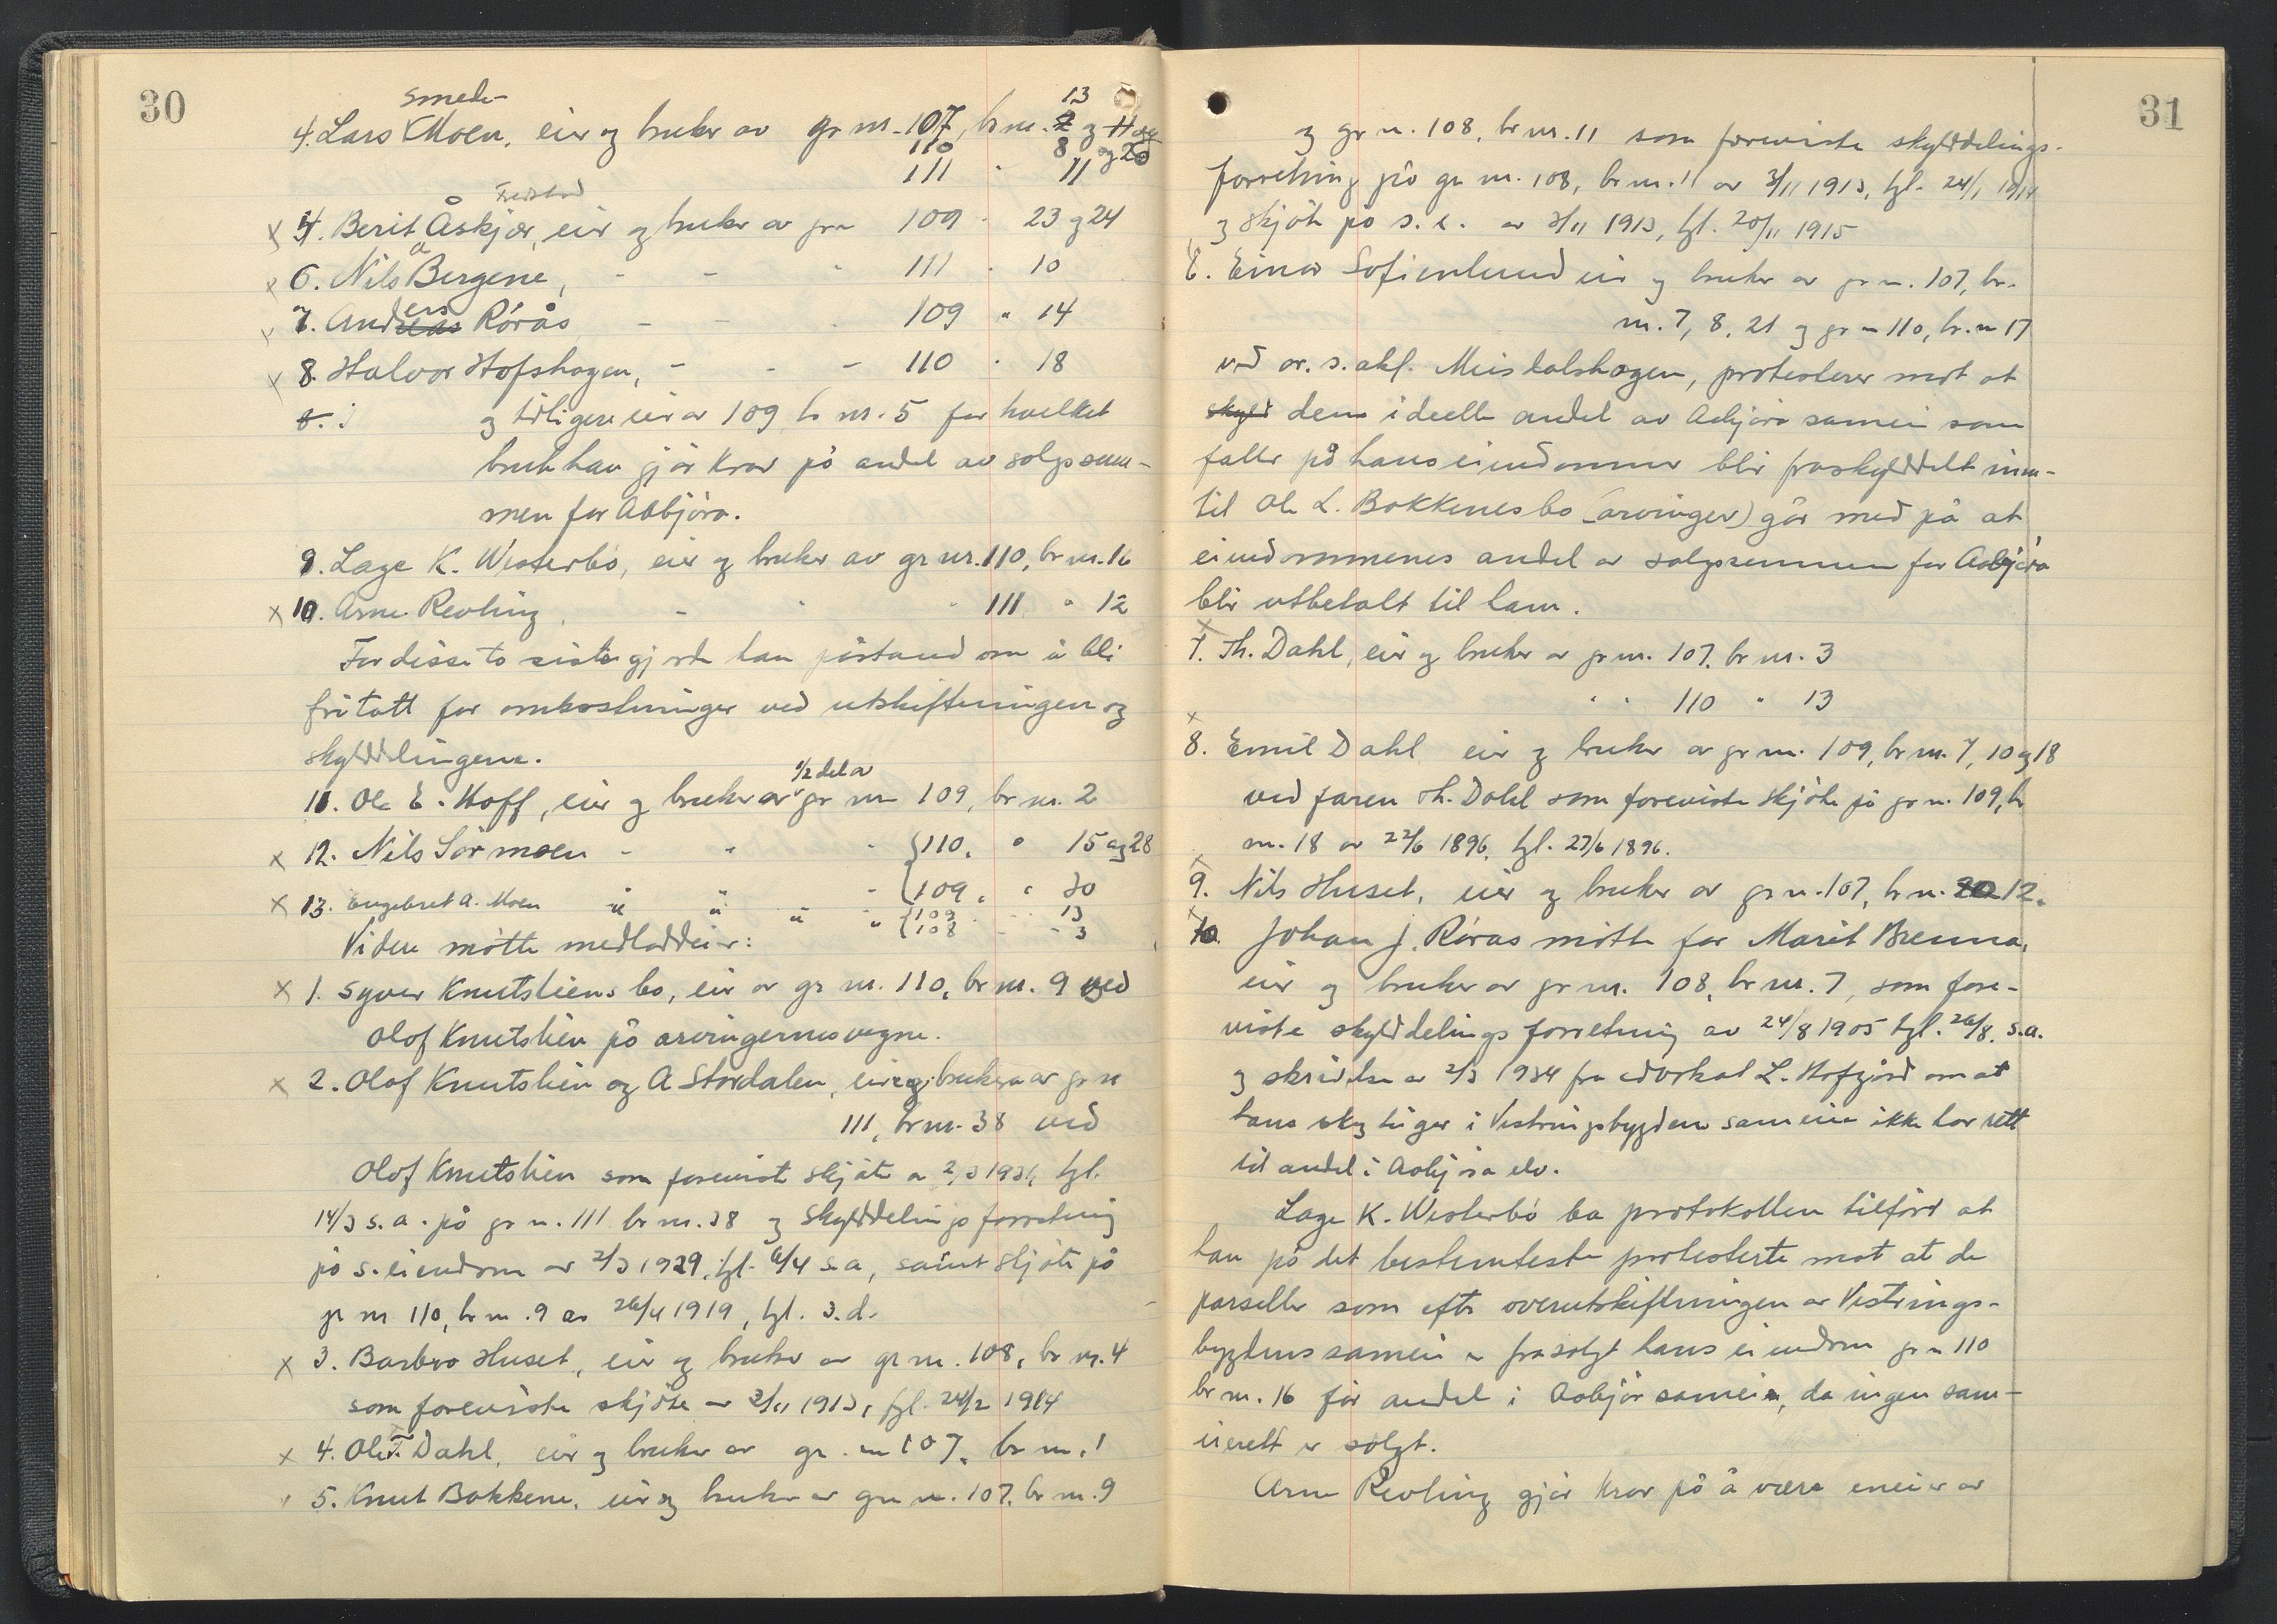 30
smed-
4. Lars Moen, eier og bruker av gr nr. 107, br nr. 13
110 8 og 20
111 " 11
x 4. Berit Åskjær, eier og bruker av gr n 109 " 23 og 24
x 6. Nils Bergene, - - " 111 " 10
x 7. Anders Rørås - - 109 " 14
x 8. Halvor Hofshagen, - - - 110 " 18
og tidligere eier av 109 br nr. 5 for hvilket
bruk han gjør krav på andel av salgssum-
men for Aabjøra.
9. Lage K. Westerbø, eier og bruker av gr nr. 110, br nr. 16
x 10. Arne Revling, - " " 111 " 12
For disse to siste gjorde han påstand om å bli
fritatt for omkostninger ved utskiftningen og
skylddelingene.
1/2 del av
11. Ole E. Hoff, eier og bruker av gr nr 109, br nr. 2
x 12. Nils Sørmoen - " - {110, " 15 og 28
{109, " 30
x 13. Engebret A. Moen " " " " {109 - - 13
{108 - - 3
Videre møtte medloddeier:
x 1. Syver Knutsliens bo, eier av gr nr. 110, br nr. 9 ved
Olof Knutslien på arvingernes vegne.
x 2. Olof Knutslien og A Stordalen, eier og brukere av gr n
111, br nr. 38 ved
Olof Knutslien som foreviste skjøte av 2/3 1931, tgl.
14/3 s.a. på gr n. 111 br nr. 38 og skylddelingsforretning
på s. eiendom av 2/3 1929, tgl. 6/4 s.a, samt skjøte på
gr nr 110, br nr. 9 av 26/4 1919, tgl. s.d.
x 3. Barbro Huset, eier og bruker av gr nr. 108, br nr. 4
som foreviste skjøte av 3/11 1913, tgl. 24/2 1914
x 4. Ole T. Dahl, eier og bruker av gr. nr 107, br nr. 1
5. Knut Bakkene, eier og bruker av gr n. 107, br nr. 9
31
og gr n. 108, br nr. 11 som foreviste skylddelings-
forretning på gr nr. 108, br nr. 11 av 3/11 1913, tgl. 24/1 1914
og skjøte på s. e. av 3/11 1913, tgl. 20/11 1915
6. Einar Sofienlund eier og bruker av gr n. 107, br.
nr. 7, 8, 21 og gr n 110, br. n 17
ved or. s.akf. Meisdalshagen, protesterer mot at
skyld den ideelle andel av Aabjøra sameie som
faller på hans eiendommer blir fraskylddelt inn-
til Ole L. Bakkenes bo (arvinger) går med på at
eiendommenes andel av salgssummen for Aabjøra
blir utbetalt til ham.
x
7. Th. Dahl, eier og bruker av gr nr. 107, br nr. 3
" " 110 " 13
x
8. Emil Dahl eier og bruker av gr nr. 109, br nr. 7, 10 og 18
ved faren Th. Dahl som foreviste skjøte på gr n. 109, br
nr. 18 av 22/6 1896, tgl. 27/6 1896.
x
9. Nils Huset, eier og bruker av gr n. 107, br n. 20 12.
x
10. Johan J. Rørås møtte for Marit Brenna,
eier og bruker av gr nr. 108, br nr. 7, som fore-
viste skylddelingsforretning av 24/8 1905 tgl. 26/8 s.a.
og skrivelse av 2/3 1934 fra advokat L. Hofgård om at
hans teiger i Vestringsbygdens sameie ikke har rett
til andel i Aabjøra elv.
Lage K. Westerbø ba protokollen tilført at
han på det bestemteste protesterte mot at de
parseller som efter overutskiftningen av Vestrings-
bygdens sameie er frasolgt hans eiendom gr n 110
br nr. 16 får andel i Aabjør sameie, da ingen sam-
eierett er solgt.
Arne Revling gjør krav på å være eneeier av